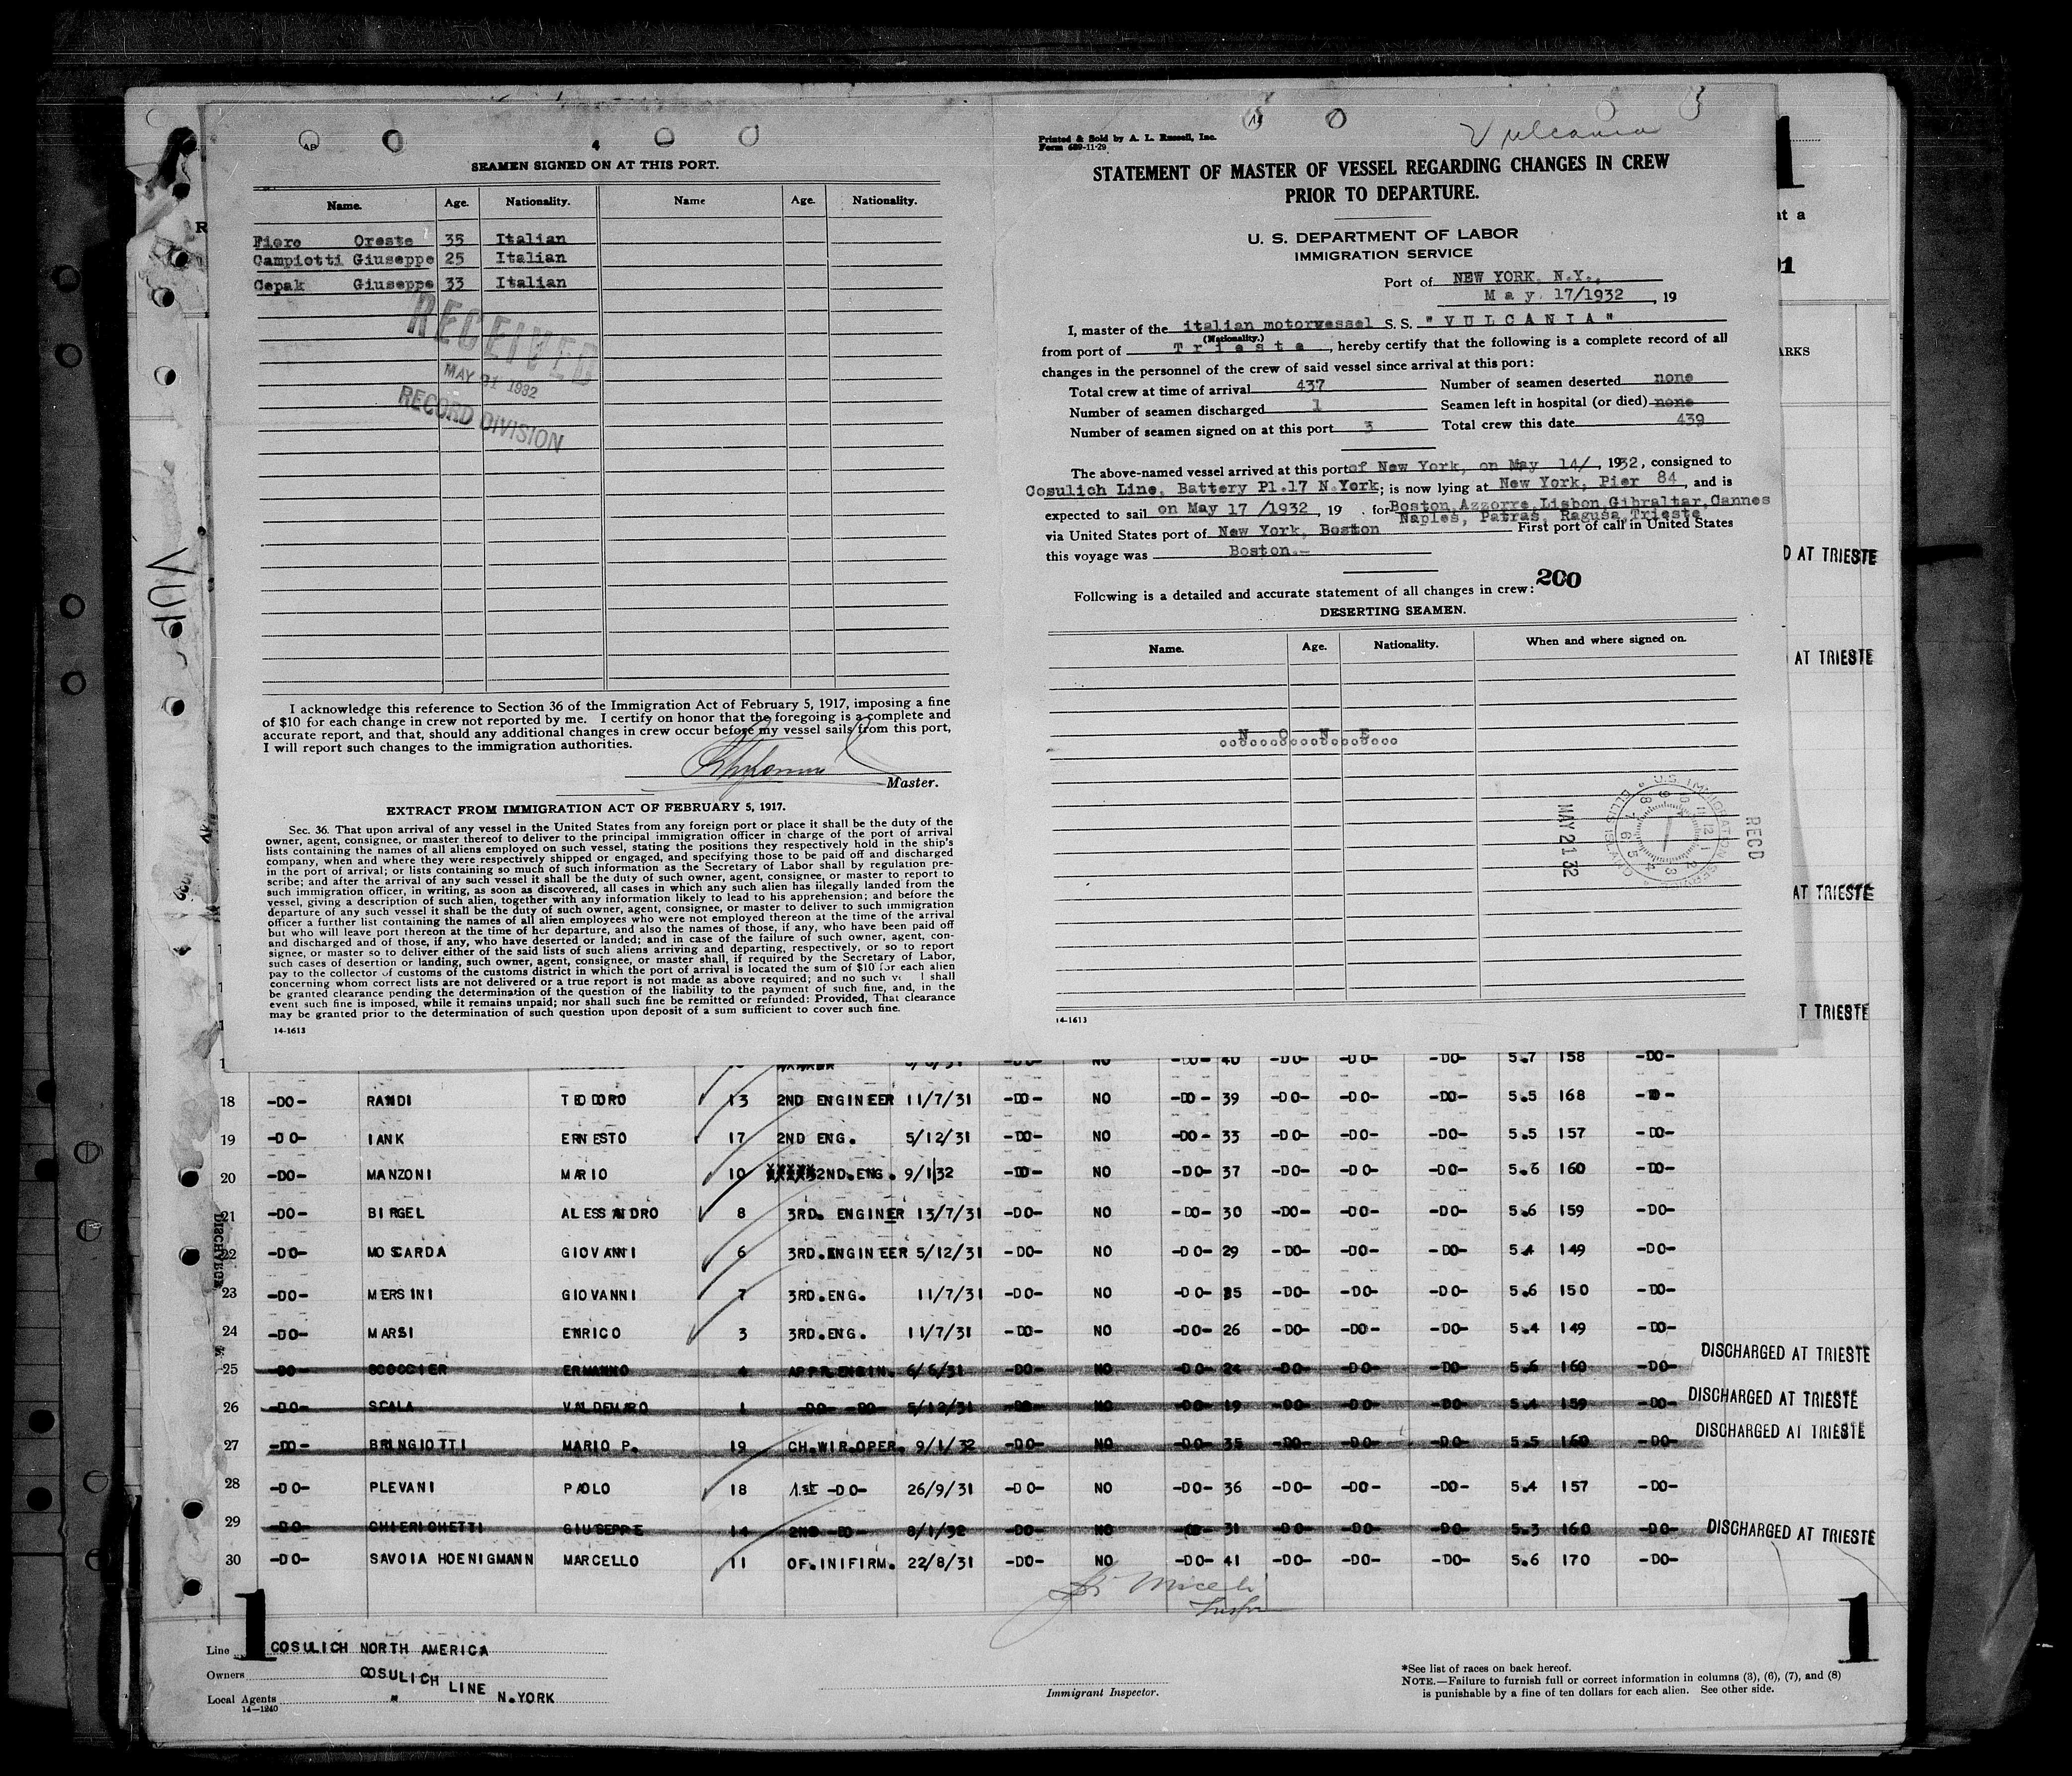 4
SEAMEN SIGNED ON AT THIS PORT.
Name. Age. Nationality. Name Age. Nationality.
Fiero Oreste 35 Italian
Campiotti Giuseppe 25 Italian
Cepak Giuseppe 33 Italian
RECEIVED
MAY 21 1932
RECORD DIVISION
I acknowledge this reference to Section 36 of the Immigration Act of February 5, 1917, imposing a fine
of $10 for each change in crew not reported by me. I certify on honor that the foregoing is a complete and
accurate report, and that, should any additional changes in crew occur before my vessel sails from this port,
I will report such changes to the immigration authorities.
Master.
EXTRACT FROM IMMIGRATION ACT OF FEBRUARY 5, 1917.
Sec. 36. That upon arrival of any vessel in the United States from any foreign port or place it shall be the duty of the
owner, agent, consignee, or master thereof to deliver to the principal immigration officer in charge of the port of arrival
lists containing the names of all aliens employed on such vessel, stating the positions they respectively hold in the ship's
company, when and where they were respectively shipped or engaged, and specifying those to be paid off and discharged
in the port of arrival; or lists containing so much of such information as the Secretary of Labor shall by regulation pre-
scribe; and after the arrival of any such vessel it shall be the duty of such owner, agent, consignee, or master to report to
such immigration officer, in writing, as soon as discovered, all cases in which any such alien has illegally landed from the
vessel, giving a description of such alien, together with any information likely to lead to his apprehension; and before the
departure of any such vessel it shall be the duty of such owner, agent, consignee, or master to deliver to such immigration
officer a further list containing the names of all alien employees who were not employed thereon at the time of the arrival
but who will leave port thereon at the time of her departure, and also the names of those, if any, who have been paid off
and discharged and of those, if any, who have deserted or landed; and in case of the failure of such owner, agent, con-
signee, or master so to deliver either of the said lists of such aliens arriving and departing, respectively, or so to report
such cases of desertion or landing, such owner, agent, consignee, or master shall, if required by the Secretary of Labor,
pay to the collector of customs of the customs district in which the port of arrival is located the sum of $10 for each alien
concerning whom correct lists are not delivered or a true report is not made as above required; and no such ve l shall
be granted clearance pending the determination of the question of the liability to the payment of such fine, and, in the
event such fine is imposed, while it remains unpaid; nor shall such fine be remitted or refunded: Provided, That clearance
may be granted prior to the determination of such question upon deposit of a sum sufficient to cover such fine.
14-1613
Printed & Sold by A. L. Russell, Inc.
Form 689-11-29
Vulcania
STATEMENT OF MASTER OF VESSEL REGARDING CHANGES IN CREW
PRIOR TO DEPARTURE.
U. S. DEPARTMENT OF LABOR
IMMIGRATION SERVICE
Port of NEW YORK, N.Y.,
May 17/1932, 19
I, master of the italian motorvessel S. S. "VULCANIA"
(Nationality.)
from port of Trieste, hereby certify that the following is a complete record of all
changes in the personnel of the crew of said vessel since arrival at this port:
Total crew at time of arrival 437 Number of seamen deserted none
Number of seamen discharged 1 Seamen left in hospital (or died) none
Number of seamen signed on at this port 3 Total crew this date 439
The above-named vessel arrived at this port of New York, on May 14/, 1932, consigned to
Cosulich Line, Battery Pl.17 N.York; is now lying at New York, Pier 84, and is
expected to sail on May 17 /1932, 19 . for Boston,Azzorre,Lisbon,Gibraltar,Cannes
Naples, Patras, Ragusa,Trieste
via United States port of New York, Boston First port of call in United States
this voyage was Boston.-
200
Following is a detailed and accurate statement of all changes in crew:
DESERTING SEAMEN.
Name. Age. Nationality. When and where signed on.
NONE
U.S. IMMIGRATION SERVICE ELLIS ISLAND
MAY 21 32
RECD
14-1613
1
at a
ARKS
D AT TRIESTE
AT TRIESTE
AT TRIESTE
T TRIESTE
40 -DO- -DO- -DO- 5.7 158 -DO-
18 -DO- RANDI TEODORO 13 2ND ENGINEER 11/7/31 -DO- NO -DO- 39 -DO- -DO- -DO- 5.5 168 -DO-
19 -DO- IANK ERNESTO 17 2ND ENG. 5/12/31 -DO- NO -DO- 33 -DO- -DO- -DO- 5.5 157 -DO-
20 -DO- MANZONI MARIO 10 2ND.ENG. 9/1/32 -DO- NO -DO- 37 -DO- -DO- -DO- 5.6 160 -DO-
21 -DO- BIRGEL ALESSANDRO 8 3RD. ENGINER 13/7/31 -DO- NO -DO- 30 -DO- -DO- -DO- 5.6 159 -DO-
22 -DO- MOSCARDA GIOVANNI 6 3RD.ENGINEER 5/12/31 -DO- NO -DO- 29 -DO- -DO- -DO- 5.4 149 -DO-
23 -DO- MERSINI GIOVANNI 7 3RD.ENG. 11/7/31 -DO- NO -DO- 25 -DO- -DO- -DO- 5.6 150 -DO-
24 -DO- MARSI ENRICO 3 3RD.ENG. 11/7/31 -DO- NO -DO- 26 -DO- -DO- -DO- 5.4 149 -DO-
25 -DO- SCOCCIER ERMANNO 4 APPR.ENGIN. 6/6/31 -DO- NO -DO- 24 -DO- -DO- -DO- 5.6 160 -DO- DISCHARGED AT TRIESTE
26 -DO- SCALA VALDEMARO 1 -DO- -DO- 5/12/31 -DO- NO -DO- 19 -DO- -DO- -DO- 5.4 159 -DO- DISCHARGED AT TRIESTE
27 -DO- BRINGIOTTI MARIO P. 19 CH.WIR.OPER. 9/1/32 -DO- NO -DO- 35 -DO- -DO- -DO- 5.5 160 -DO- DISCHARGED AT TRIESTE
28 -DO- PLEVANI PAOLO 18 1st -DO- 26/9/31 -DO- NO -DO- 36 -DO- -DO- -DO- 5.4 157 -DO-
29 -DO- CHIERICHETTI GIUSEPPE 14 2ND -DO- 8/1/32 -DO- NO -DO- 31 -DO- -DO- -DO- 5.3 160 -DO- DISCHARGED AT TRIESTE
30 -DO- SAVOIA HOENIGMANN MARCELLO 11 OF.INIFIRM. 22/8/31 -DO- NO -DO- 41 -DO- -DO- -DO- 5.6 170 -DO-
Miceli
1 1
Line COSULICH NORTH AMERICA
Owners COSULICH LINE
Local Agents " N.YORK
14-1240
Immigrant Inspector.
*See list of races on back hereof.
NOTE.—Failure to furnish full or correct information in columns (3), (6), (7), and (8)
is punishable by a fine of ten dollars for each alien. See other side.